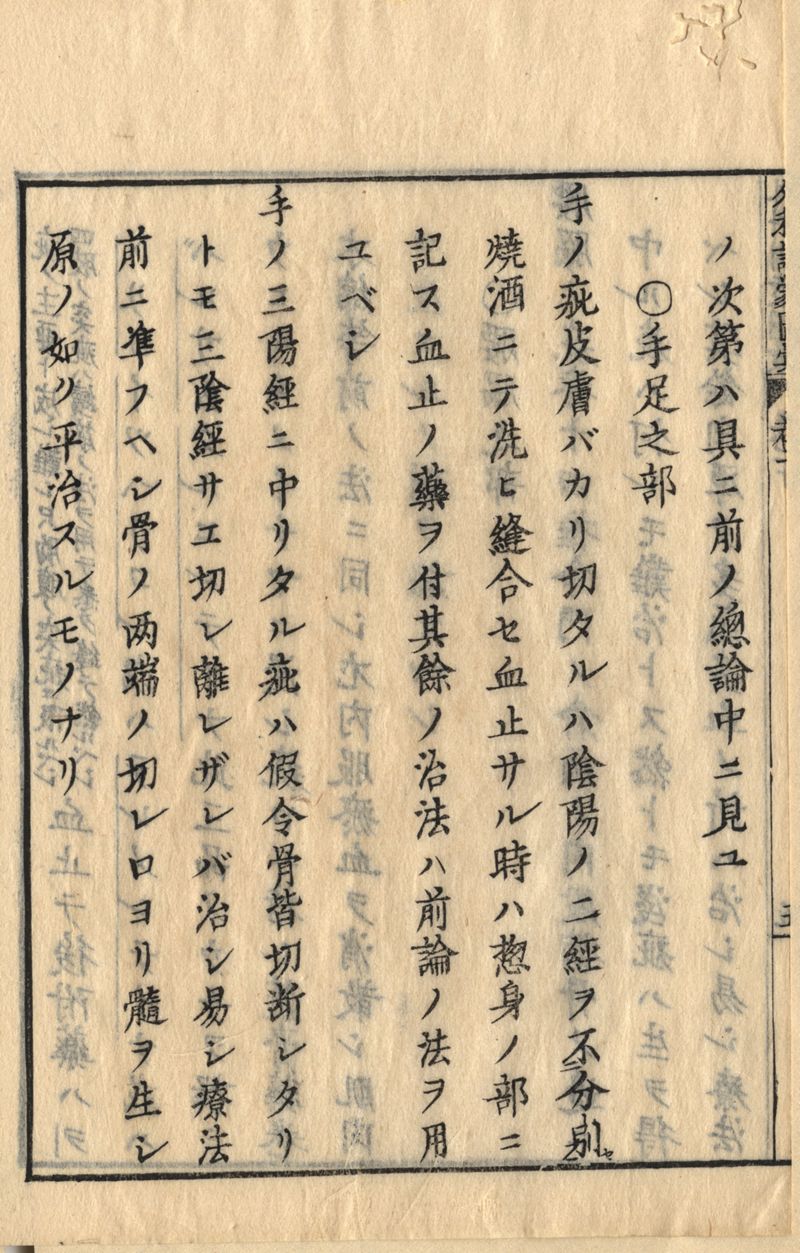 ノ次第ハ具ニ前ノ總論中ニ見ユ
〇手足之部
手ノ疵皮膚バカリ切タルハ陰陽ノ二經ヲ不分別セ
燒酒ニテ洗ヒ縫合セ血止サル時ハ惣身ノ部ニ
記ス血止ノ藥ヲ付其餘ノ治法ハ前論ノ法ヲ用
ユベシ
手ノ三陽經ニ中リタル疵ハ假令骨皆切断シタリ
トモ三陰經サエ切レ離レザレバ治シ易シ療法
前ニ準フヘシ骨ノ两端ノ切レロヨリ髓ヲ生シ
原ノ如ク平治スルモノナリ